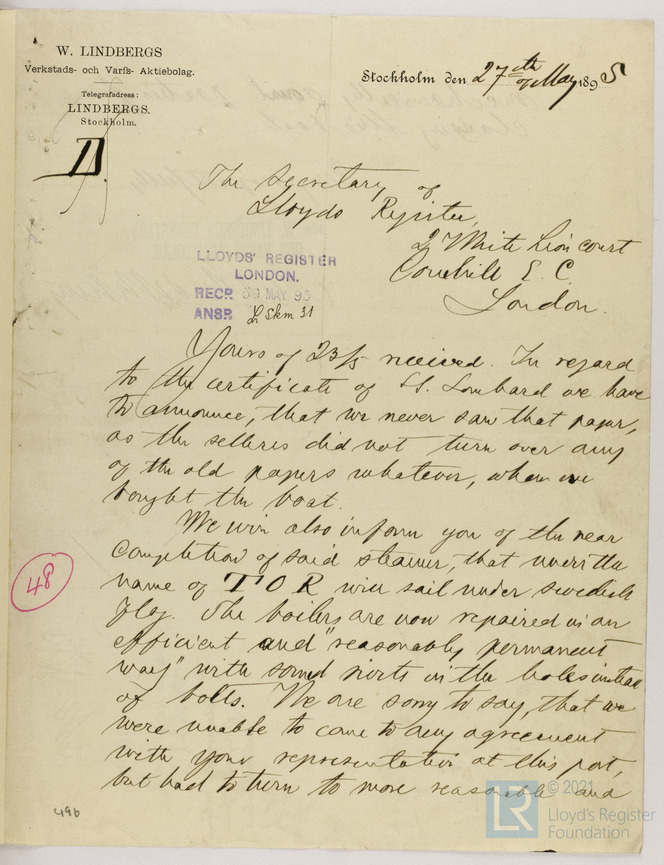 W. LINDBERGS
Verkstads- och Varfs- Aktiebolag.
Telegrafadress:
LINDBERGS.
Stockholm.
Stockholm den 27th of May 1895
The Secretary of
Lloyds Register,
2 White Lion court
Cornhill E. C.
London.
LLOYDS' REGISTER
LONDON.
RECD. 30 MAY. 95
ANSD. L Skm 31
Yours of 23/5 received. In regard
to the certificate of St. Lombard we have
to announce, that we never saw that paper,
as the selleres did not turn over any
of the old papers whatever, when we
bought the boat.
We win also inform you of the near
completion of said steamer, that under the
name of TOR will sail under swedish
flag. The boilers are now repaired in an
efficient and "reasonably permanent
way" with sound rivets in the holes instead
of bolts. We are sorry to say, that we
were unable to come to any agreement
with your representative at this port,
but had to turn to more reasonable and
48
496
LR © 2021
Lloyd's Register
Foundation